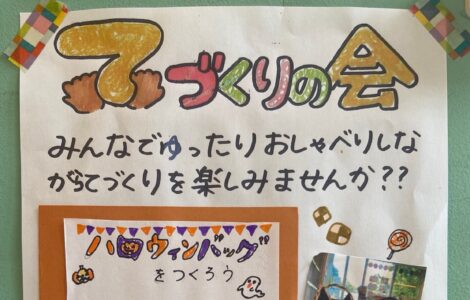 てづくりの会
みんなでゆったりおしゃべりしな
がらてづくりを楽しみませんか??
ハロウィンバッグ
をつくろう